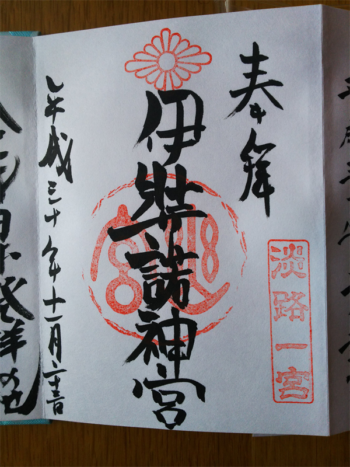 奉拝
淡路一宮
伊弉諾神宮
平成三十年十一月
日本発祥の地